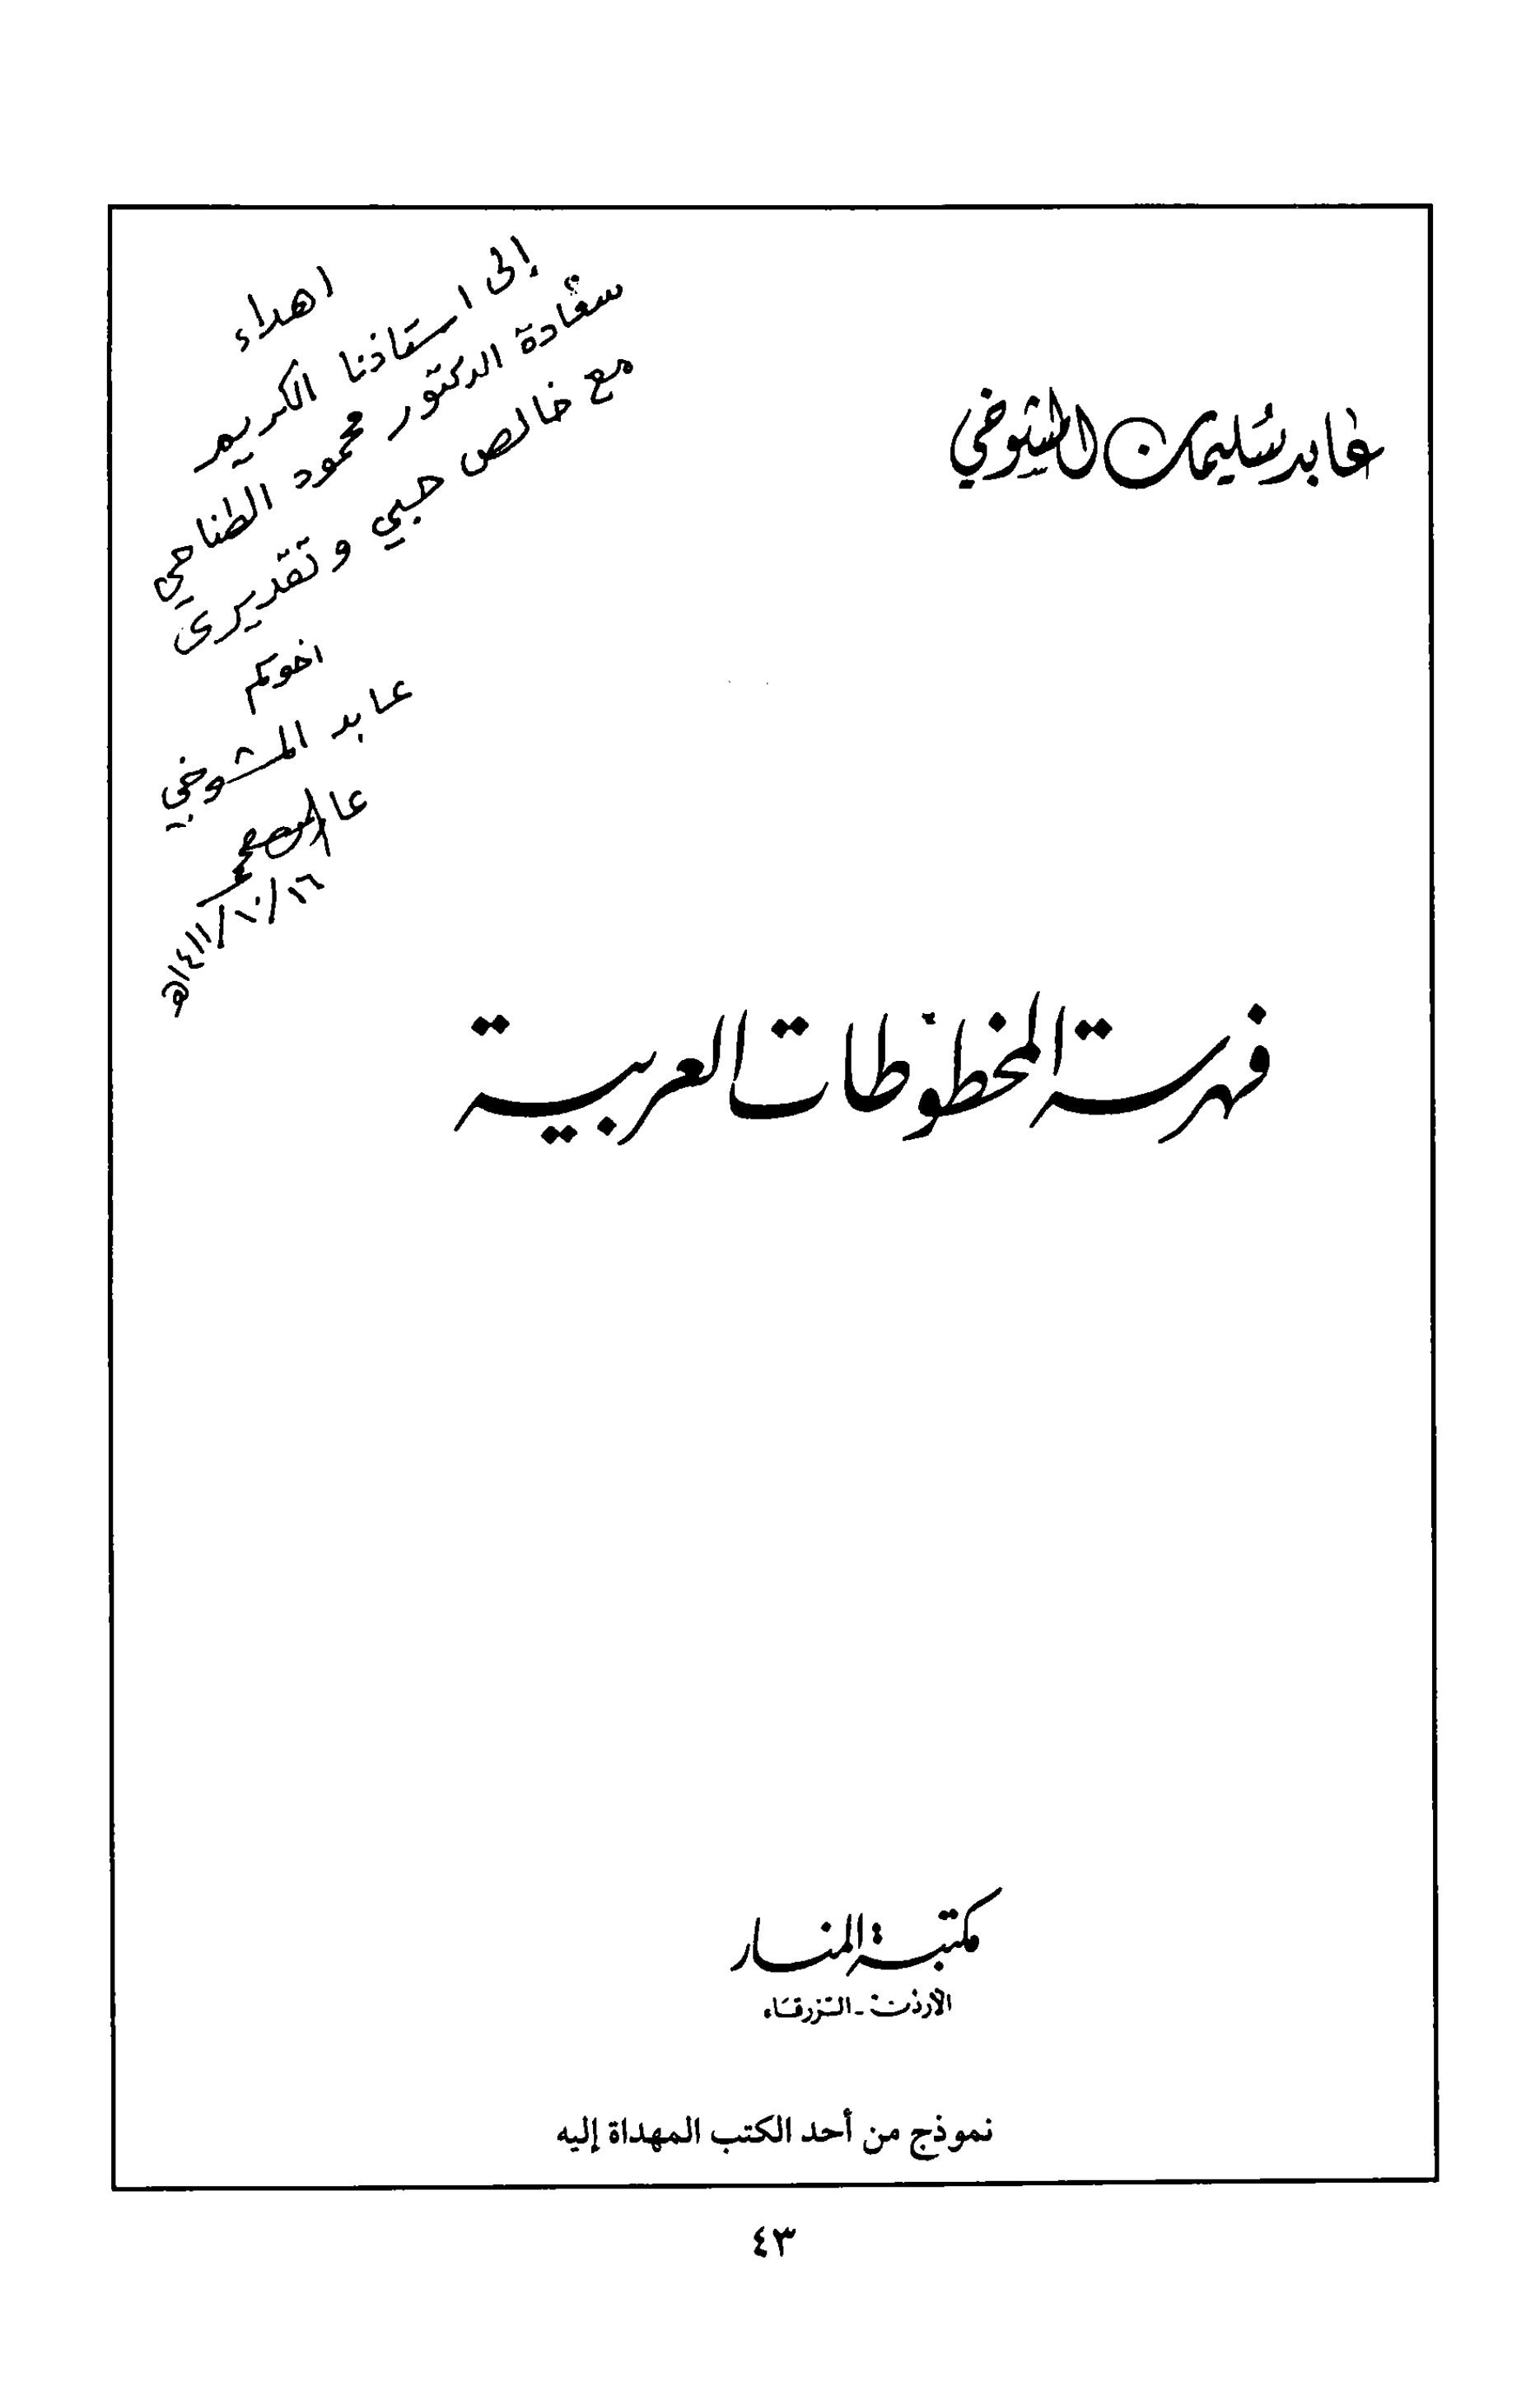 اهداء
إلى استاذنا الكريم
سعادة الدكتور محمود الطناحي
مع خالص حبي وتقديري
اخوكم
عابد المشوخي
١٤١١/١٠/١٦هـ
عابد سليمان المشوخي
فهرسة المخطوطات العربية
مكتبة المنار
الأردن - الزرقاء
نموذج من أحد الكتب المهداة إليه
٤٣